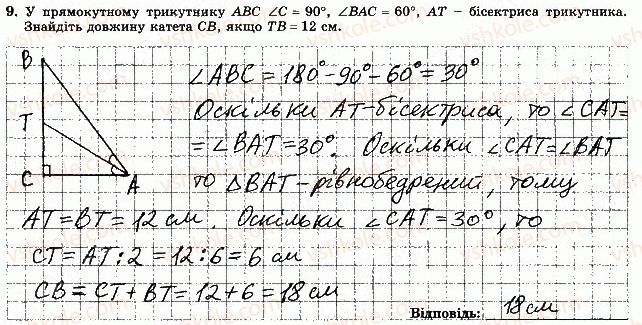 9. У прямокутному трикутнику ABC ∠C = 90°, ∠BAC = 60°, AT – бісектриса трикутника.
Знайдіть довжину катета CB, якщо TB = 12 см.
B
T
C
A
∠ABC = 180° - 90° - 60° = 30°
Оскільки AT-бісектриса, то ∠CAT=
= ∠BAT = 30°. Оскільки ∠CAT=∠BAT
то △BAT-рівнобедрений, тому
AT = BT = 12 см. Оскільки ∠CAT = 30°, то
CT = AT : 2 = 12 : 6 = 6 см
CB = CT + BT = 12 + 6 = 18 см
Відповідь: 18 см